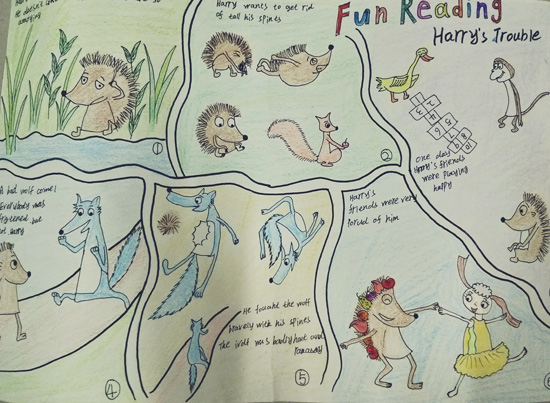 Fun Reading
Harry's Trouble
He doesn't
①
Harry wants to get rid
of tall his spines
②
one day
Harry's friends
were playing
happy
A bad wolf come!
Everybody was
frightened but
④
He touched the wolf
bravely with his spines
The wolf was badly hurt and
ran away
⑤
Harry's
friends were very
proud of him